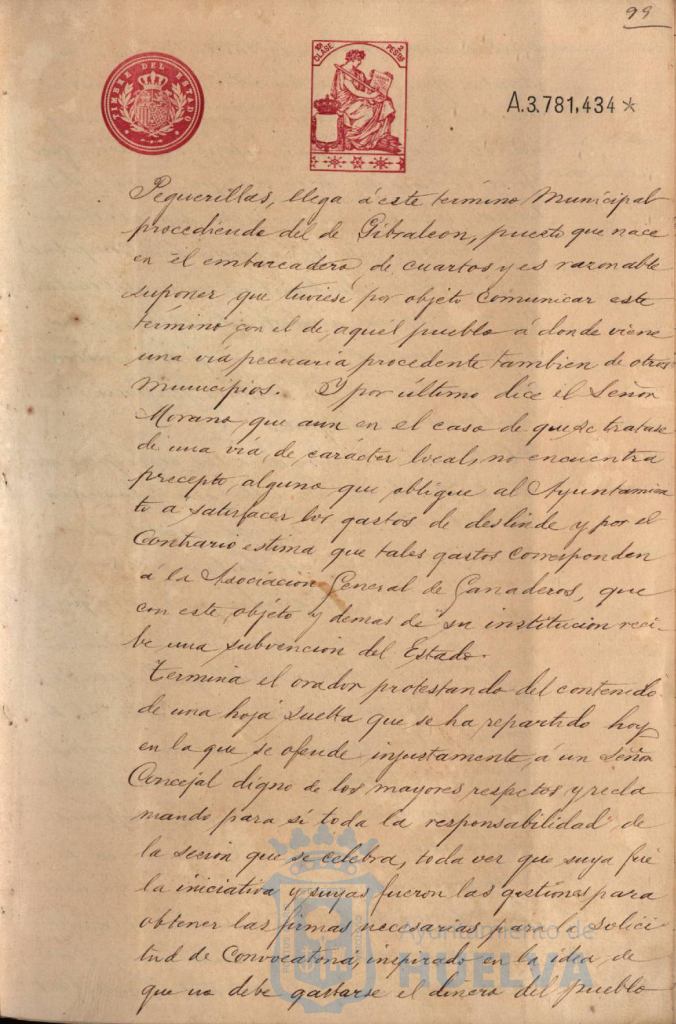 99
TIMBRE DEL ESTADO
10ª CLASE 2 PESTAS
A.3.781,434*
Peguerillas, llega á este término Municipal
procediendo del de Gibraleon, puesto que nace
en el embarcadero de cuartos y es razonable
suponer que tuviese por objeto comunicar este
término con el de aquél pueblo á donde viene
una vía pecuaria procedente tambien de otros
Municipios. Y por último dice el Señor
Morano, que aun en el caso de que se tratase
de una vía, de carácter local, no encuentra
precepto alguno que obligue al Ayuntamien
to a satisfacer los gastos de deslinde y por el
Contrario estima que tales gastos corresponden
á la Asociación General de Ganaderos, que
con este objeto y demas de su institucion reci-
be una subvencion del Estado.
Termina el orador protestando del contenido
de una hoja suelta que se ha repartido hoy
en la que se ofende injustamente á un Señor
Concejal digno de los mayores respetos y recla
mando para sí toda la responsabilidad de
la sesion que se celebra, toda vez que suya fué
la iniciativa y suyas fueron las gestiones para
obtener las firmas necesarias para la solici-
tud de Convocatoria, inspirado en la idea de
que no debe gastarse el dinero del pueblo
Ayuntamiento de
HUELVA